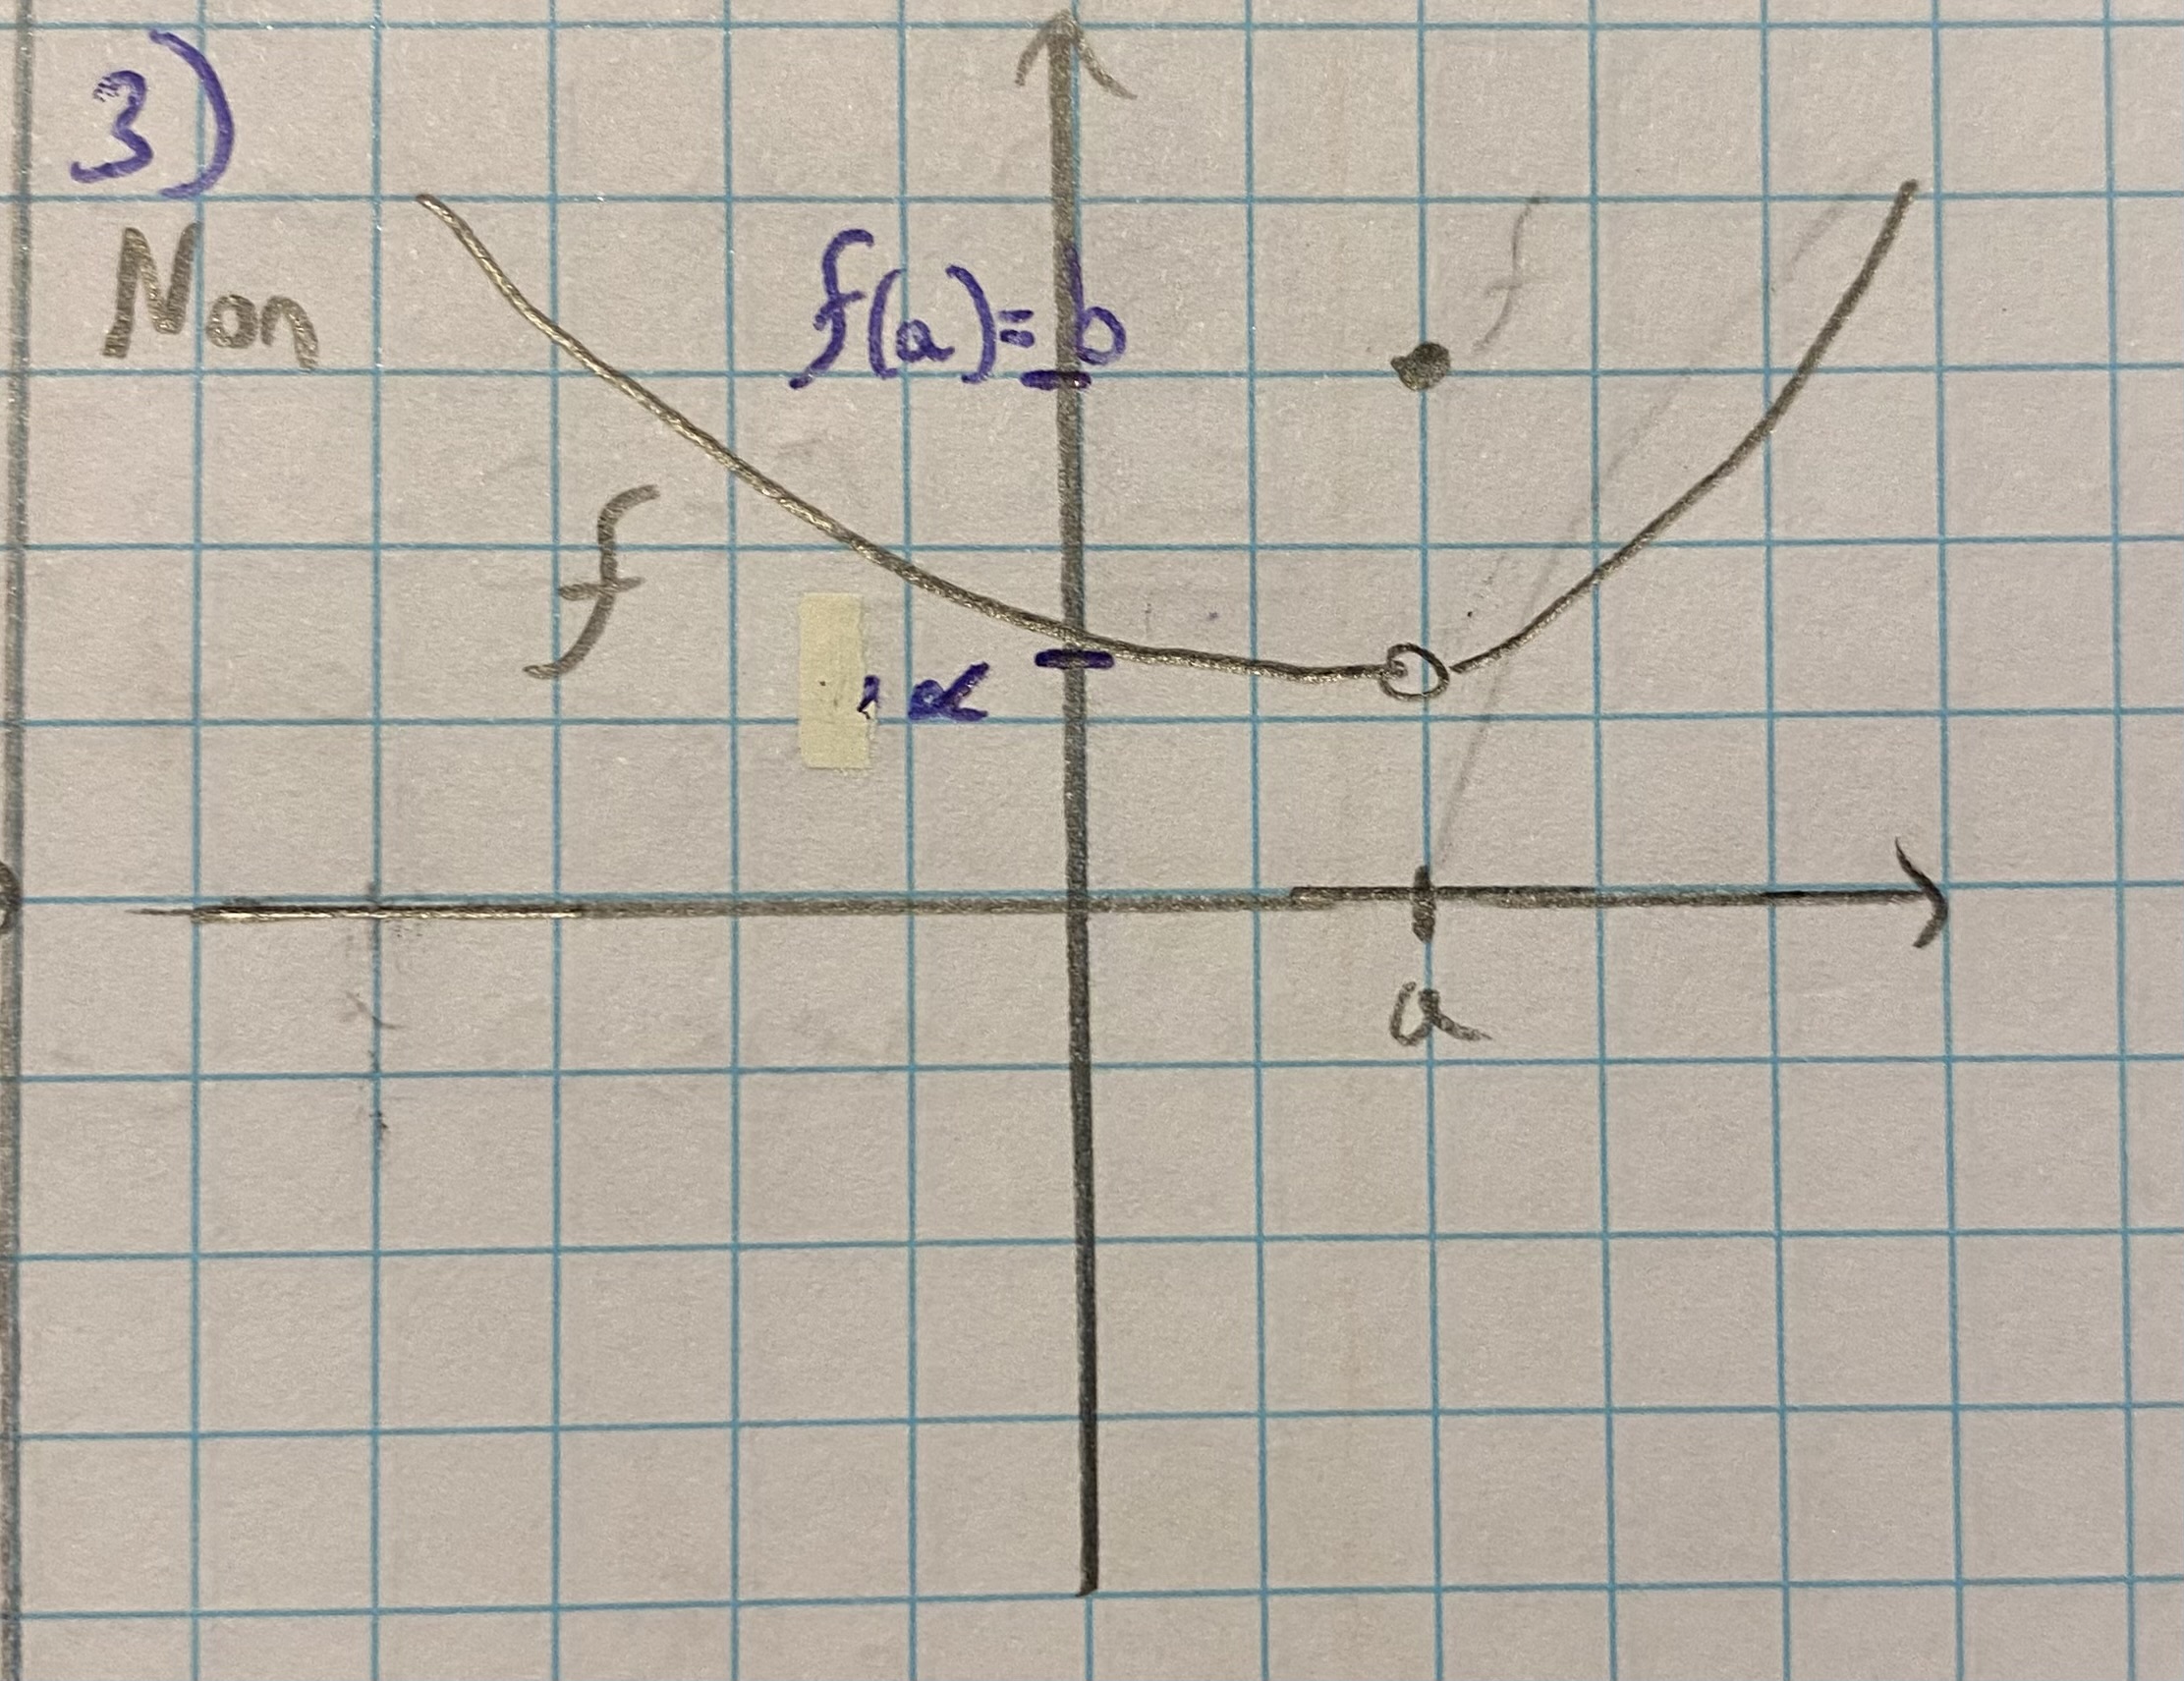 3)
Non
f(a)=b
f
f
α
a